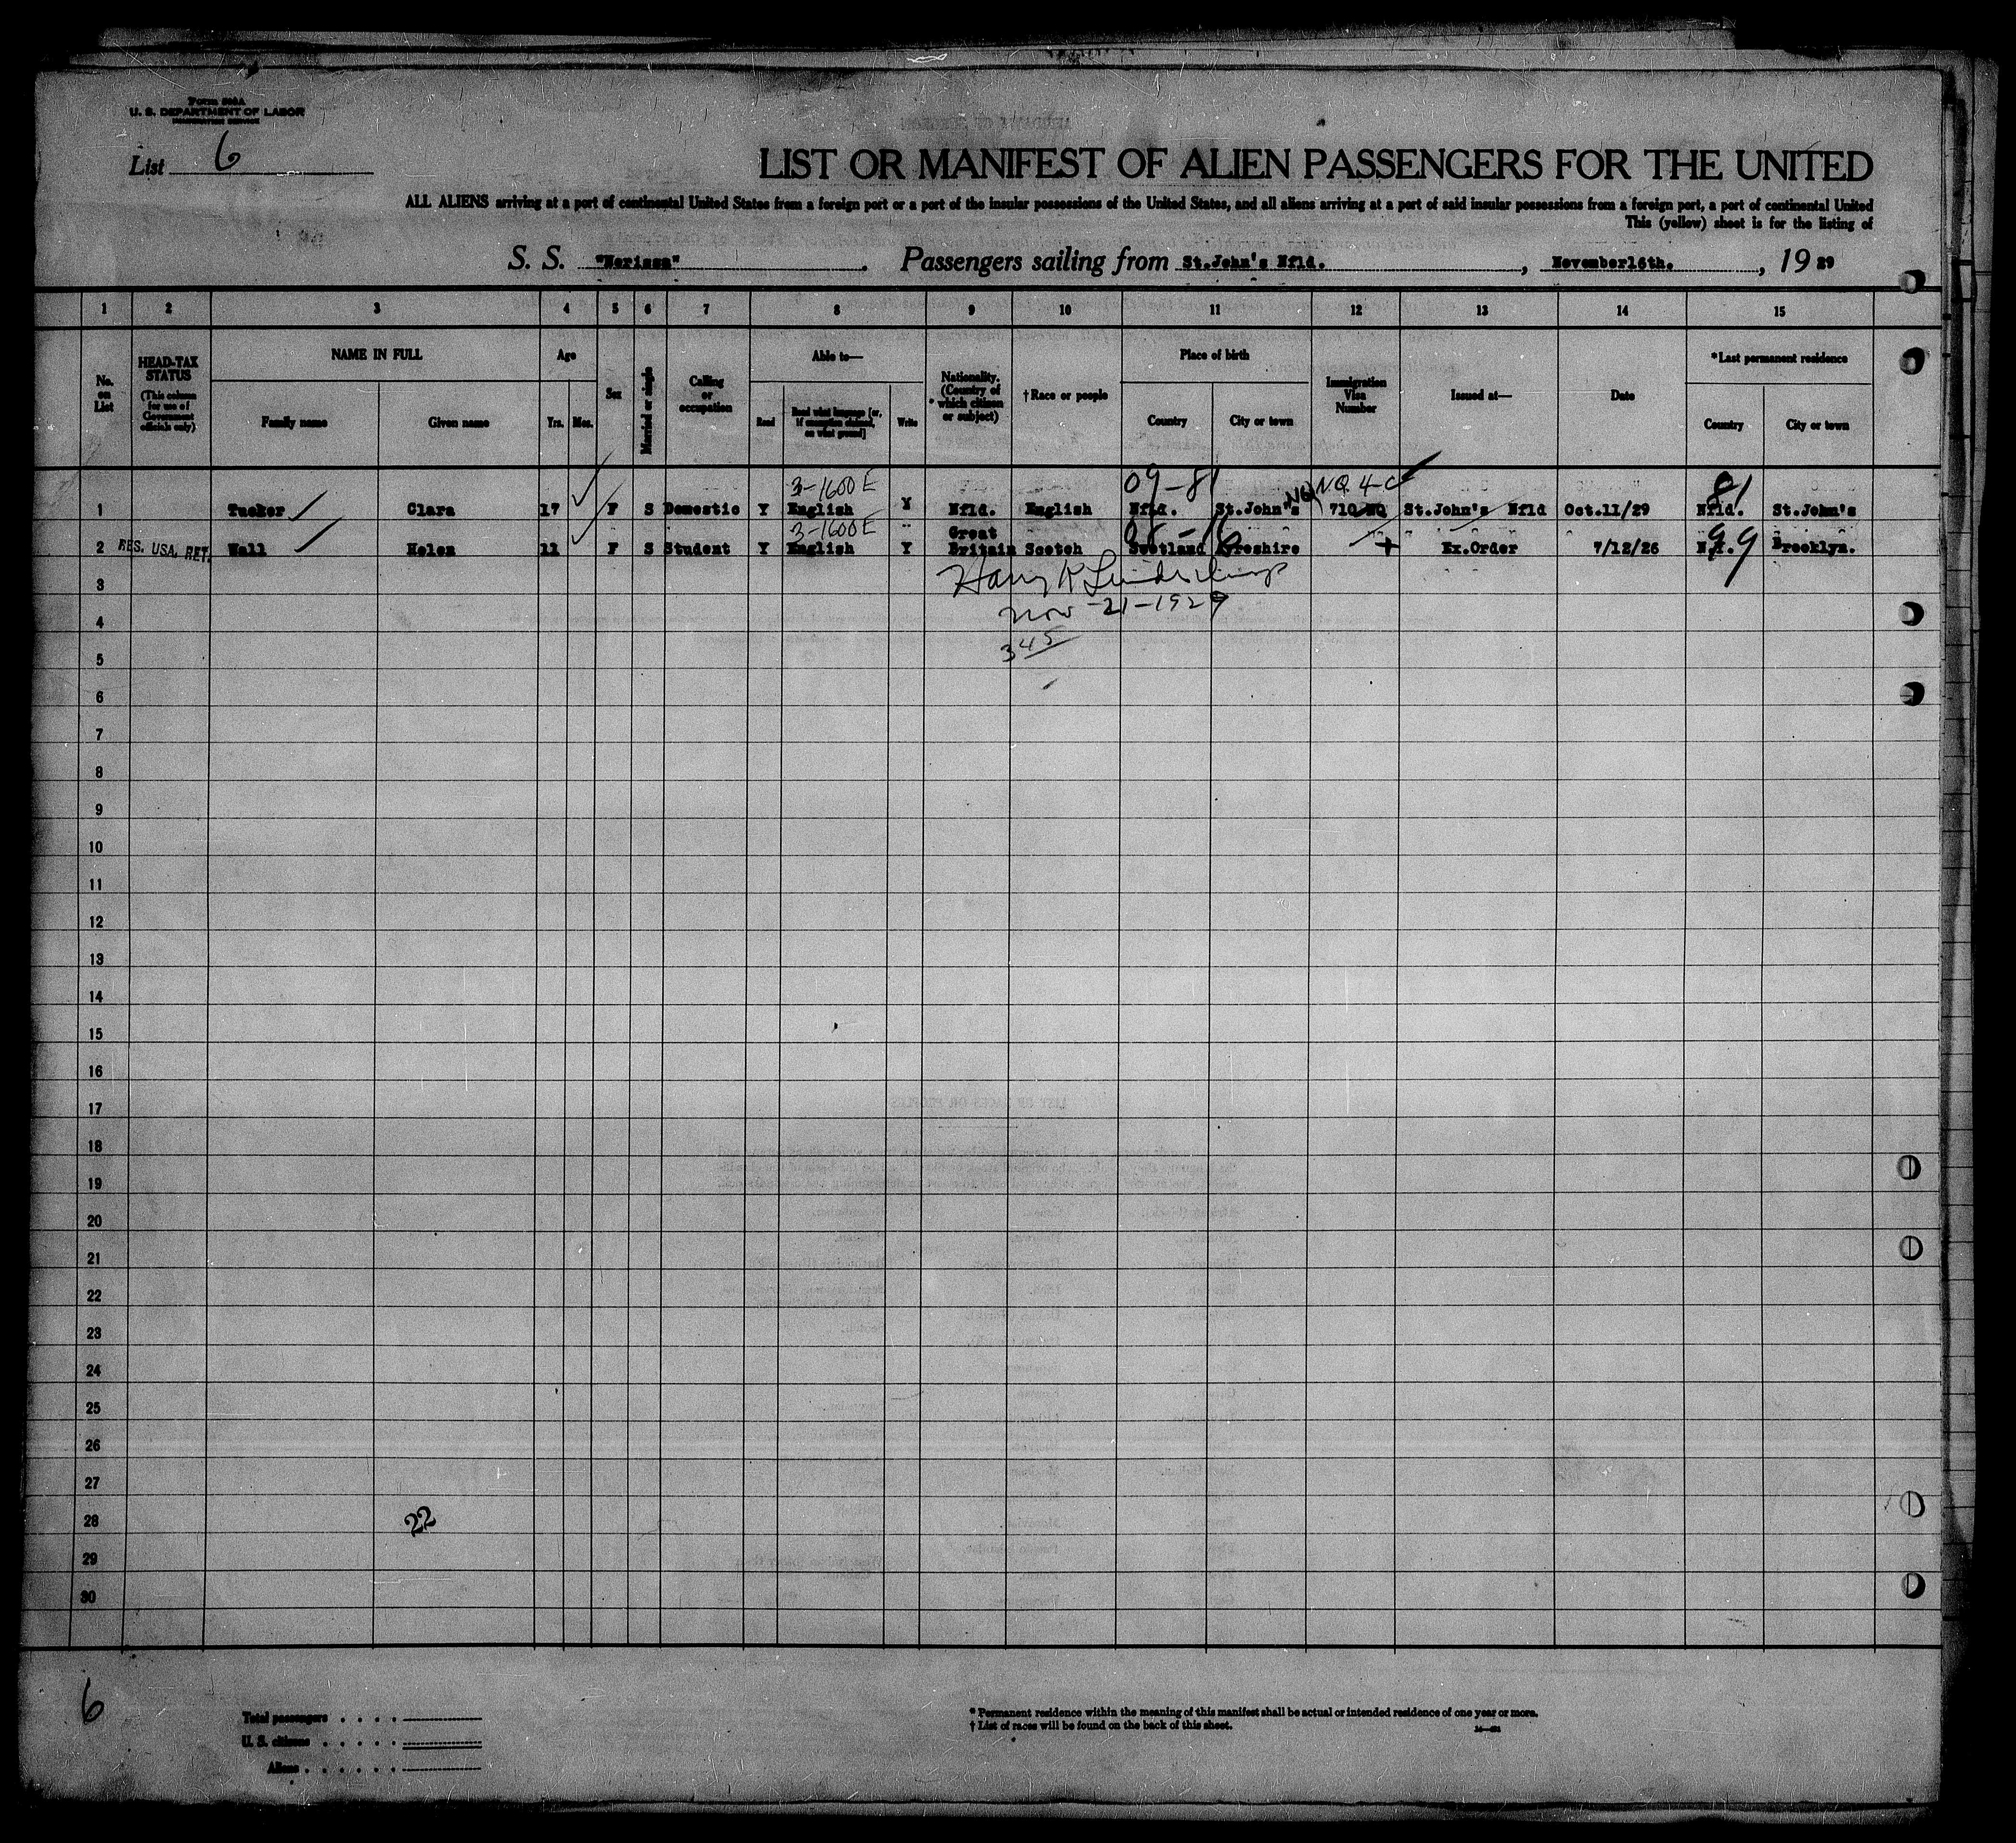 Form 500A
U. S. DEPARTMENT OF LABOR
IMMIGRATION SERVICE
List 6
LIST OR MANIFEST OF ALIEN PASSENGERS FOR THE UNITED
ALL ALIENS arriving at a port of continental United States from a foreign port or a port of the insular possessions of the United States, and all aliens arriving at a port of said insular possessions from a foreign port, a port of continental United
This (yellow) sheet is for the listing of
S. S. "Nerissa" . Passengers sailing from St.John's Nfld. , November16th. , 19 29
1 2 3 4 5 6 7 8 9 10 11 12 13 14 15
No. on List
HEAD-TAX STATUS
(This column for use of Government officials only)
NAME IN FULL
Family name
Given name
Age
Yrs.
Mos.
Sex
Married or single
Calling or occupation
Able to—
Read
Read what language [or, if exemption claimed, on what ground]
Write
Nationality. (Country of which citizen or subject)
†Race or people
Place of birth
Country
City or town
Immigration Visa Number
Issued at—
Date
*Last permanent residence
Country
City or town
3-1600 E 09-81 NQ 4-C 81
1 Tucker Clara 17 F S Domestic Y English Y Nfld. English Nfld. St.John's NQ 710 NQ St.John's Nfld Oct.11/29 Nfld. St.John's
3-1600 E 08-16 99
2 RES. USA. RET. Wall Helen 11 F S Student Y English Y Great Britain Scotch Scotland Ayreshire + Ex.Order 7/12/26 N.Y. Brooklyn.
3 Harry K
4 Nov-21-1929
5 3 45
6
7
8
9
10
11
12
13
14
15
16
17
18
19
20
21
22
23
24
25
26
27
28 22
29
30
6
Total passengers
U. S. citizens
Aliens
* Permanent residence within the meaning of this manifest shall be actual or intended residence of one year or more.
† List of races will be found on the back of this sheet.